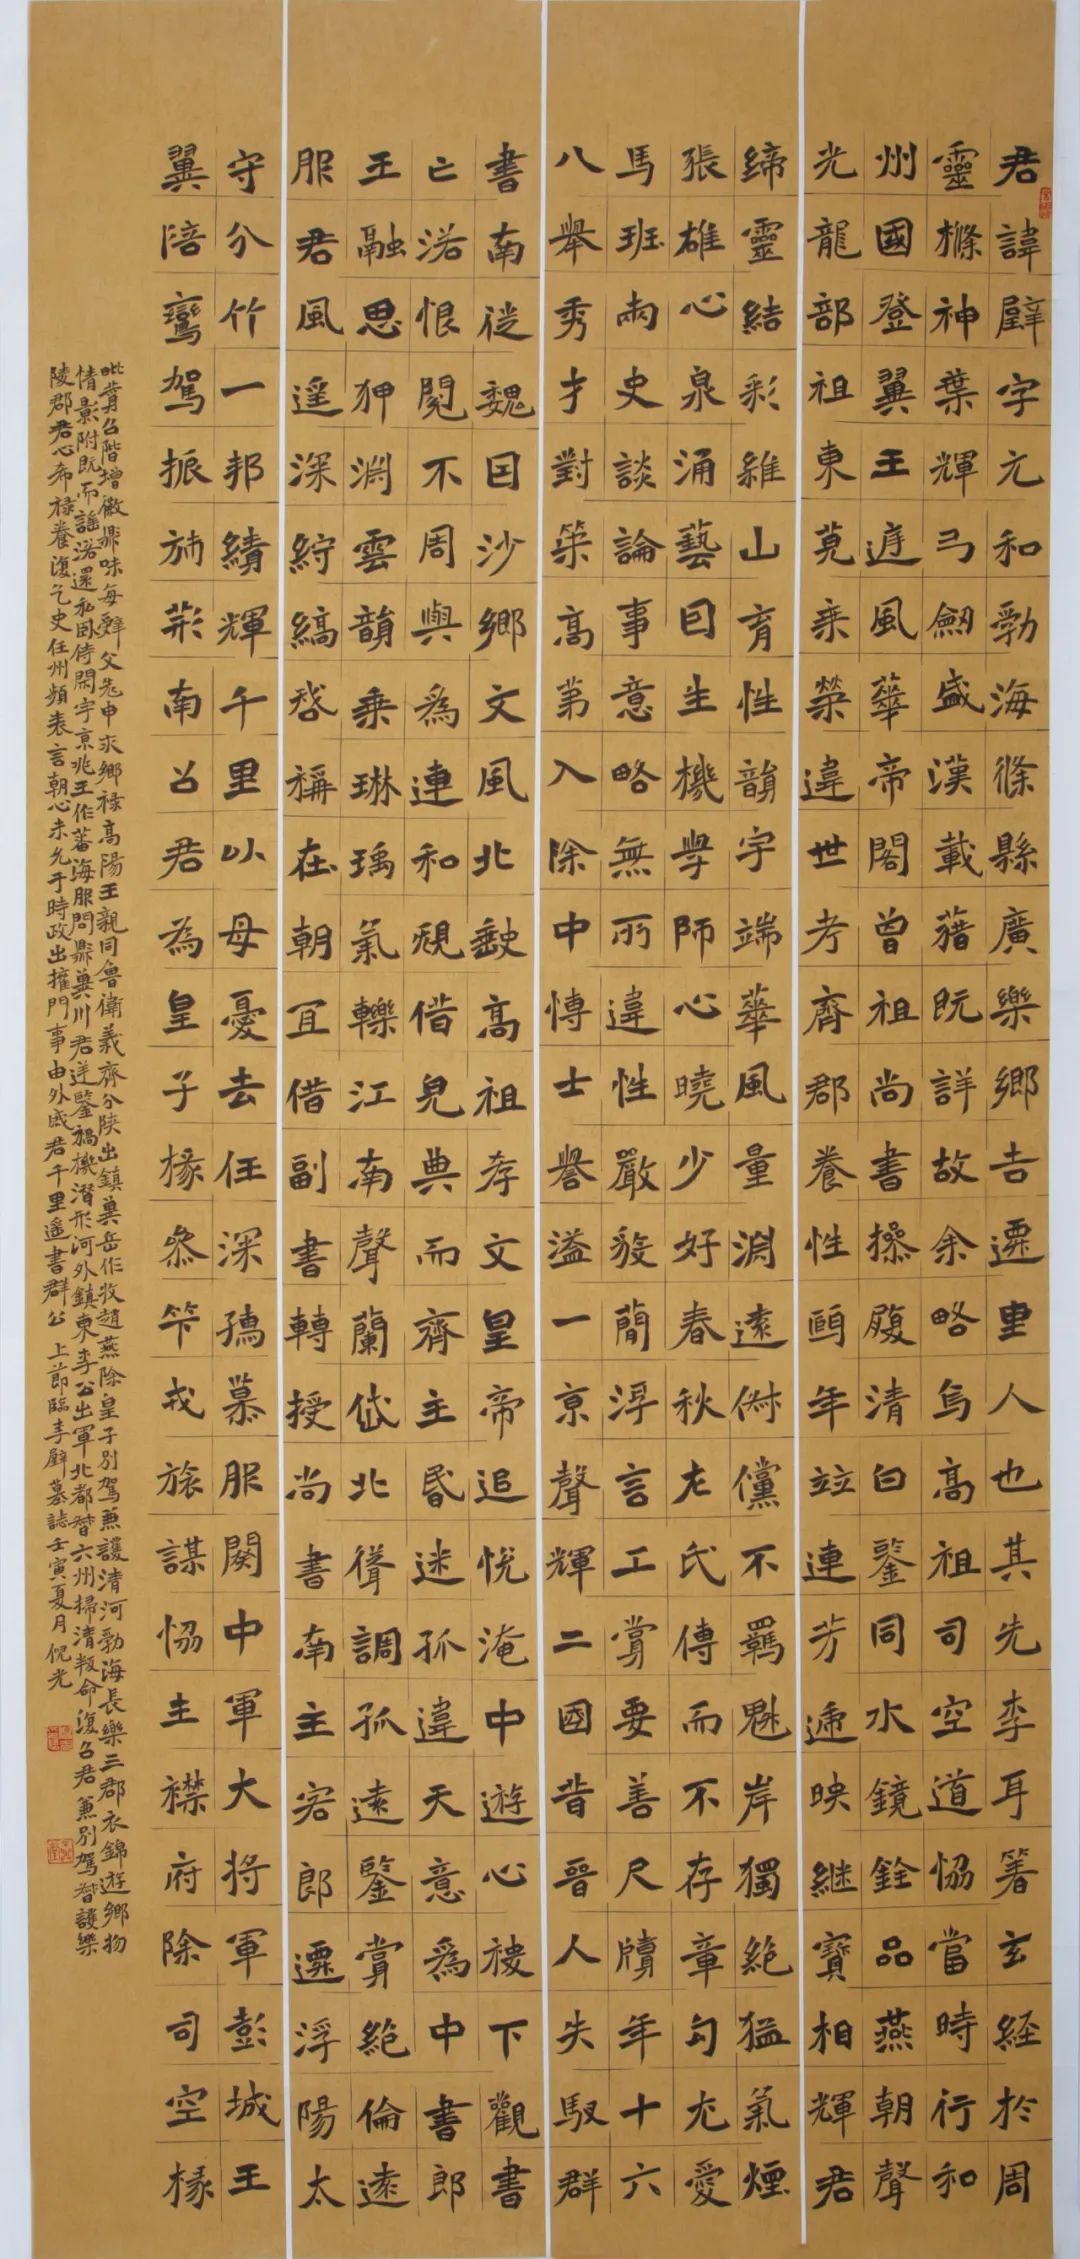 君諱璧字元和勃海條縣廣樂鄉吉遷里人也其先李耳著玄經於周
靈樤神葉輝弓劒盛漢載藉既詳故余略焉高祖司空道恊當時行和
州國登翼王遲風華帝閣曾祖尚書操履清白鑒同水鏡銓品燕朝聲
光龍部祖東莞乘榮違世考齊郡養性頤年竝連芳遞映継寶相輝君
締靈結彩維山育性韻宇端華風量淵遠倜儻不羈魁岸獨絕猛氣煙
張雄心泉涌藝因生機學師心曉少好春秋左氏傳而不存章句尤愛
馬班兩史談論事意略無所違性嚴毅簡浮言工賞要善尺牘年十六
八舉秀才對策高第入除中博士譽溢一京聲輝二國昔晉人失馭群
書南從魏因沙鄉文風北缺高祖孝文皇帝追悅淹中遊心稷下觀書
亡落恨閱不周與為連和規借完典而齊主昏迷孤違天意為中書郎
王融思狎淵雲韻乘琳瑀氣轢江南聲蘭岱北聳調孤遠鑒賞絕倫遠
服君風遥深紵縞啓稱在朝宜借副書轉授尚書南主客郎遷浮陽太
守分竹一邦績輝千里以母憂去任深孺慕服闋中軍大將軍彭城王
翼陪鸞駕振旆荊南召君為皇子掾參竿戎旅謀恊主襟府除司空掾
毗贊台階增徽鼎味每辭父老申求鄉祿高陽王親同魯衛義齊分陝出鎮冀岳作牧趙燕除皇子別駕兼護清河勃海長樂三郡衣錦遊鄉物
情影附既而謠諾還私臥侍閑宇京兆王作蕃海服問鼎冀川君逆鑒禍機潛形河外鎮東李公出軍北都督六州掃清叛命復召君兼別駕督護樂
陵郡君心希祿養復乞史任州頻表言朝心未允于時政出權門事由外戚君千里遙書群公 上節臨李璧墓誌壬寅夏月倪光